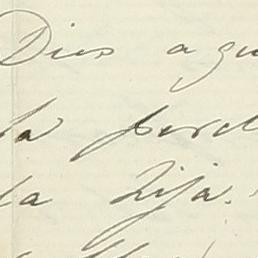 Dios a qu
la perd
la hija.